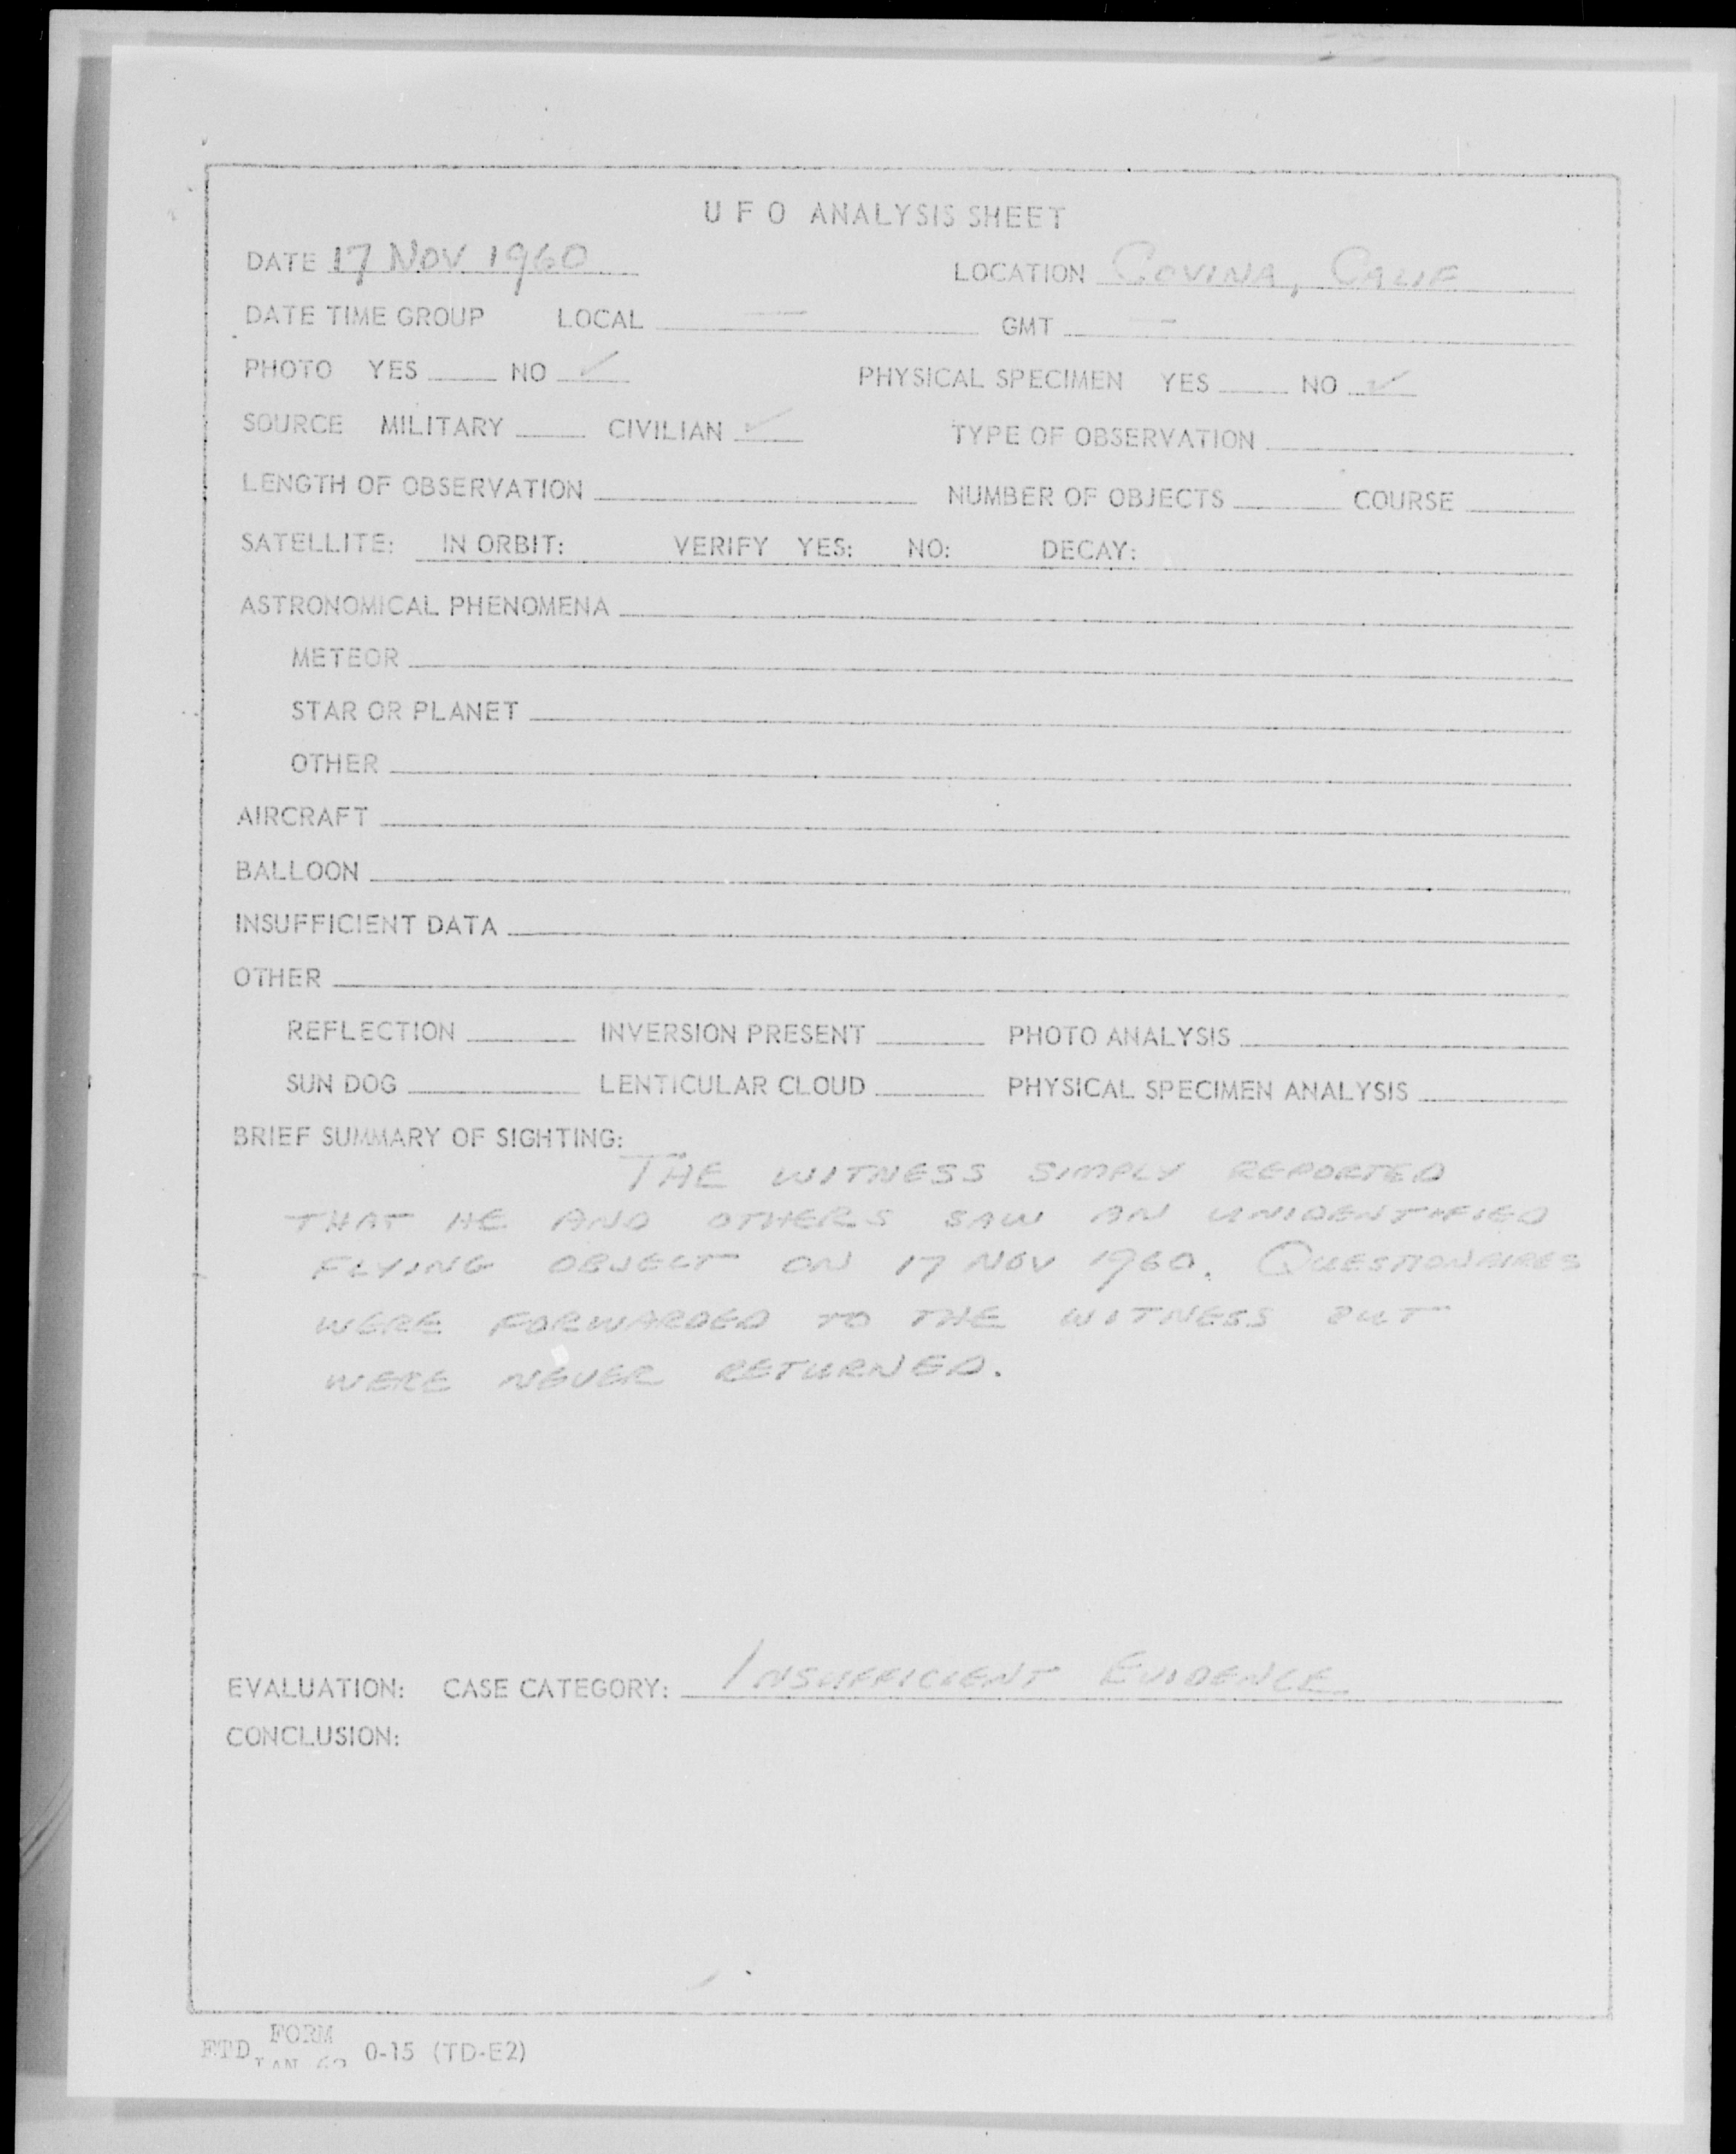 U F O ANALYSIS SHEET
DATE 17 NOV 1960 LOCATION COVINA, CALIF
DATE TIME GROUP LOCAL — GMT —
PHOTO YES NO ✓ PHYSICAL SPECIMEN YES NO ✓
SOURCE MILITARY CIVILIAN ✓ TYPE OF OBSERVATION
LENGTH OF OBSERVATION NUMBER OF OBJECTS COURSE
SATELLITE: IN ORBIT: VERIFY YES: NO: DECAY:
ASTRONOMICAL PHENOMENA
METEOR
STAR OR PLANET
OTHER
AIRCRAFT
BALLOON
INSUFFICIENT DATA
OTHER
REFLECTION INVERSION PRESENT PHOTO ANALYSIS
SUN DOG LENTICULAR CLOUD PHYSICAL SPECIMEN ANALYSIS
BRIEF SUMMARY OF SIGHTING:
THE WITNESS SIMPLY REPORTED
THAT HE AND OTHERS SAW AN UNIDENTIFIED
FLYING OBJECT ON 17 NOV 1960. QUESTIONAIRES
WERE FORWARDED TO THE WITNESS BUT
WERE NEVER RETURNED.
EVALUATION: CASE CATEGORY: INSUFFICIENT EVIDENCE
CONCLUSION:
FTD FORM JAN 0-15 (TD-E2)